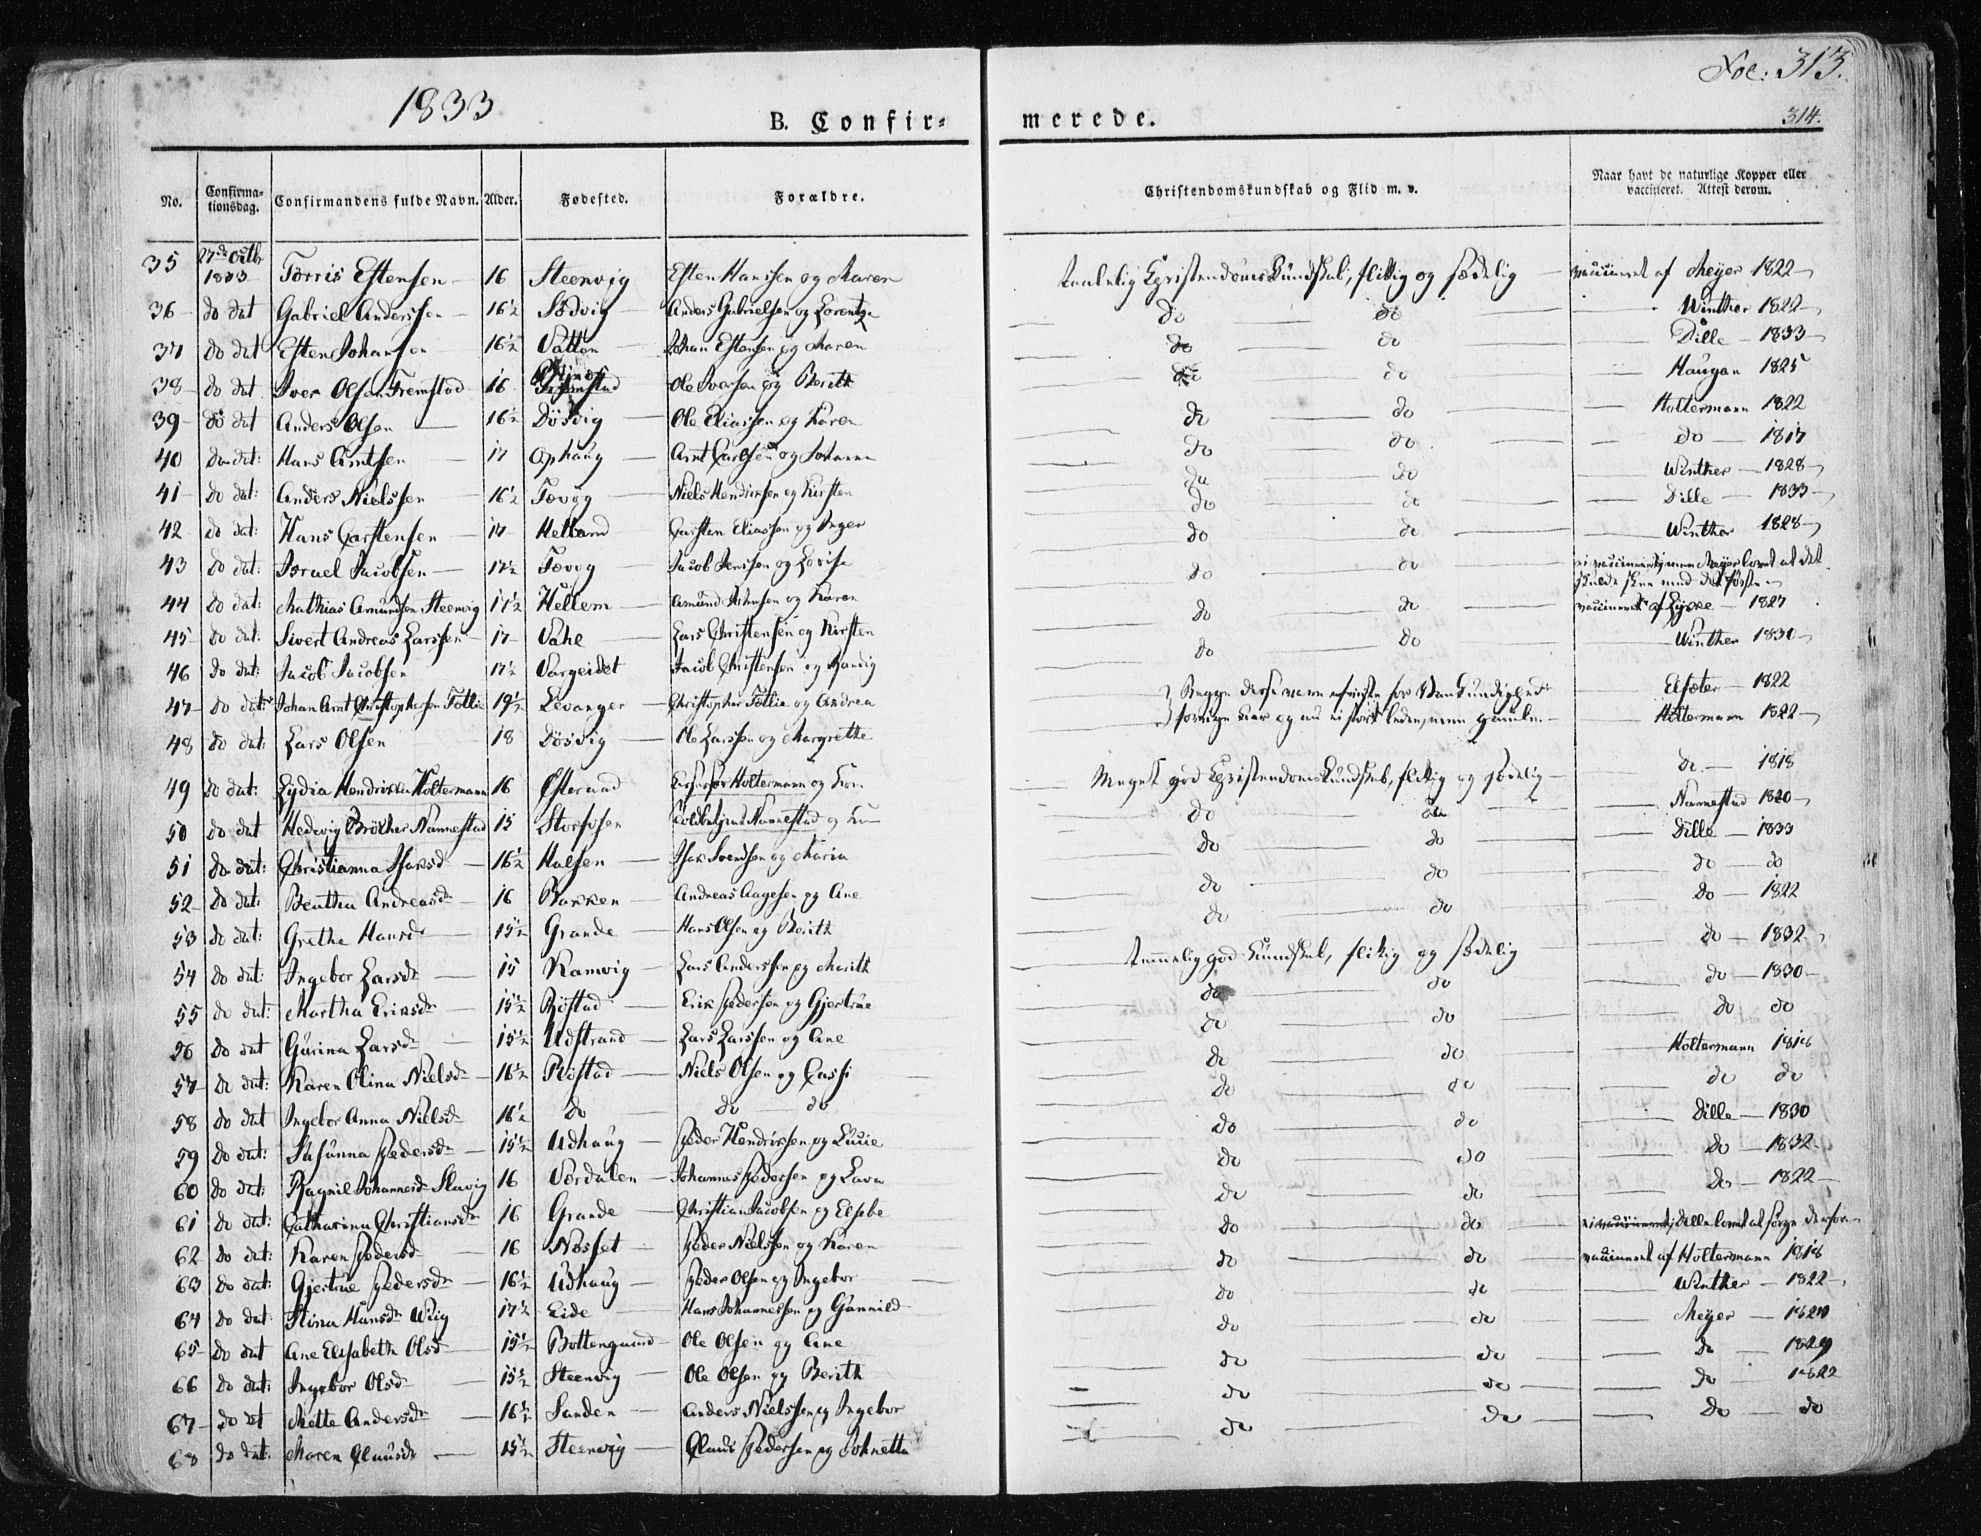 1833
Foe: 313.
B. Confir=
merede.
314.
No.
Confirma-
tionsdag.
Confirmandens fulde Navn.
Alder.
Fødested.
Forældre.
Christendomskundskab og Flid m. v.
Naar havt de naturlige Kopper eller
vaccineret. Attest derom.
35 27de Octbr 1833 Torris Estensen 16 Steenvig Esten Hansen og Maren Christendomskundskab, flittig og sædelig vaccineret af Meyer 1822
36 do dat Gabriel Anderssen 16½ Sødvig Anders Gabrielsen og Lorentze do do Winther 1822
37 do dat Esten Johansen 16½ Vatten Johan Estensen og Maren do do Dille 1833
38 do dat Iver Olsen Fremstad 16 Ole Iversen og Berith do do Haugan 1825
39 do dat Anders Olsen 16½ Døsvig Ole Eliassen og Karen do do Holtermann 1822
40 do dat: Hans Arntsen 17 Ophaug Arnt Carlsen og Johanna do do do 1817
41 do dat: Anders Nielssen 16½ Niels Hendrixsen og Kirsten do do Winther 1828
42 do dat: Hans Carstensen 17 Carsten Eliassen og Inger do do Dille 1833
43 do dat: Israel Jacobsen 17½ Jacob Jenssen og Lovise do do Winther 1828
44 do dat: Mathias Amundsen Steenvig 17½ Hellem Amund Johnsen og Karen do do ei vaccineret, men Meyer lovet at det
skulde skee med det første
45 do dat: Sivert Andreas Larssen 17 Vahe Lars Christensen og Kirsten do do vaccineret af Lysse 1827
46 do dat: Jacob Jacobsen 17½ Vargeidet Jacob Christensen og Randig do do Winther 1830
47 do dat: Johan Arnt Christophersen Tøtlie 19½ Levanger Christopher Tøtlie og Andrea Begge disse vare for Vankundighed Elsæter 1822
48 do dat: Lars Olsen 18 Døsvig Ole Larssen og Margrethe og nu ei Holtermann 1822
49 do dat: Lydia Hendrikke Holtermann 16 Østeraad Holtermann og Kone Meget god Christendomskundskab, flittig og sædelig do 1818
50 do dat Hedevig Brøcher Nannestad 15 Storfosen Nannestad og do do Nannestad 1820
51 do dat: Christianna Isaksd 16½ Halsen Isak Svendsen og Maria do do Dille 1833
52 do dat: Bentha Andreasdr 16 Bakken Andreas Aagesen og Ane do do do do
53 do dat: Grethe Hansdr 15½ Grande Hans Olsen og Berith do do do 1822
54 do dat Ingebor Larsdr 15 Ramvig Lars Anderssen og Marith temmelig god Kundskab, flittig og sædelig do 1832
55 do dat: Martha Eriksdr 15½ Røstad Erik Pedersen og Gjertrue do do do 1830
56 do dat Gurina Larsdr 15½ Udstrand Lars Larssen og Ane do do do do
57 do dat: Karen Olina Nielsdr 16½ Røstad Niels Olsen og Cassi do do Holtermann 1818
58 do dat Ingebor Anna Nielsd 16½ do do do do do do do
59 do dat: Susanna Pedersdr 15½ Udhaug Peder Hendrixsen og Lucie do do Dille 1830
60 do dat: Ragnil Johannesd Slavig 16 Verdalen Johannes Pedersen og Lava do do do 1832
61 do dat: Catharina Christiansdr 16 Grande Christian Jacobsen og Elsebe do do do 1822
62 do dat: Karen Pedersd 16 Nosset Peder Nielssen og Karen do do ei vaccineret, Dille lovet at sørge derfor
63 do dat: Gjertrue Pedersdr 16½ Udhaug Peder Olsen og Ingebor do do vaccineret af Holtermann 1818
64 do dat Stina Hansdr Wiig 17½ Eide Hans Johannessen og Gunnild do do Winther 1822
65 do dat Ane Elisabeth Olsd 15½ Bottengaard Ole Olsen og Ane do do Meyer 1820
66 do dat: Ingebor Olsd 15½ Steenvig Ole Olsen og Berith do do do 1829
67 do dat Mette Andersdr 16½ Sanden Anders Nielssen og Ingebor do do do 1822
68 do dat: Maren Clausdr 15½ Steenvig Claus Pedersen og Johnetta do do do do